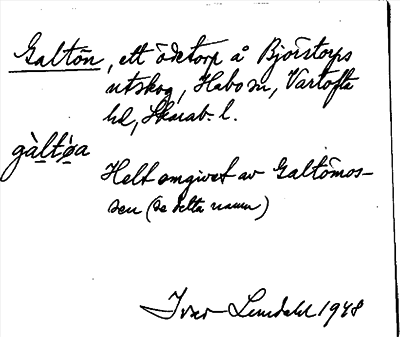 Galtön, ett ödetorp å Björstorps
utskog, Habo sn, Vartofta
hd, Skarab. l.
gàltø̀a
Helt omgivet av Galtömos-
sen (se detta namn)
Ivar Lundahl 1948